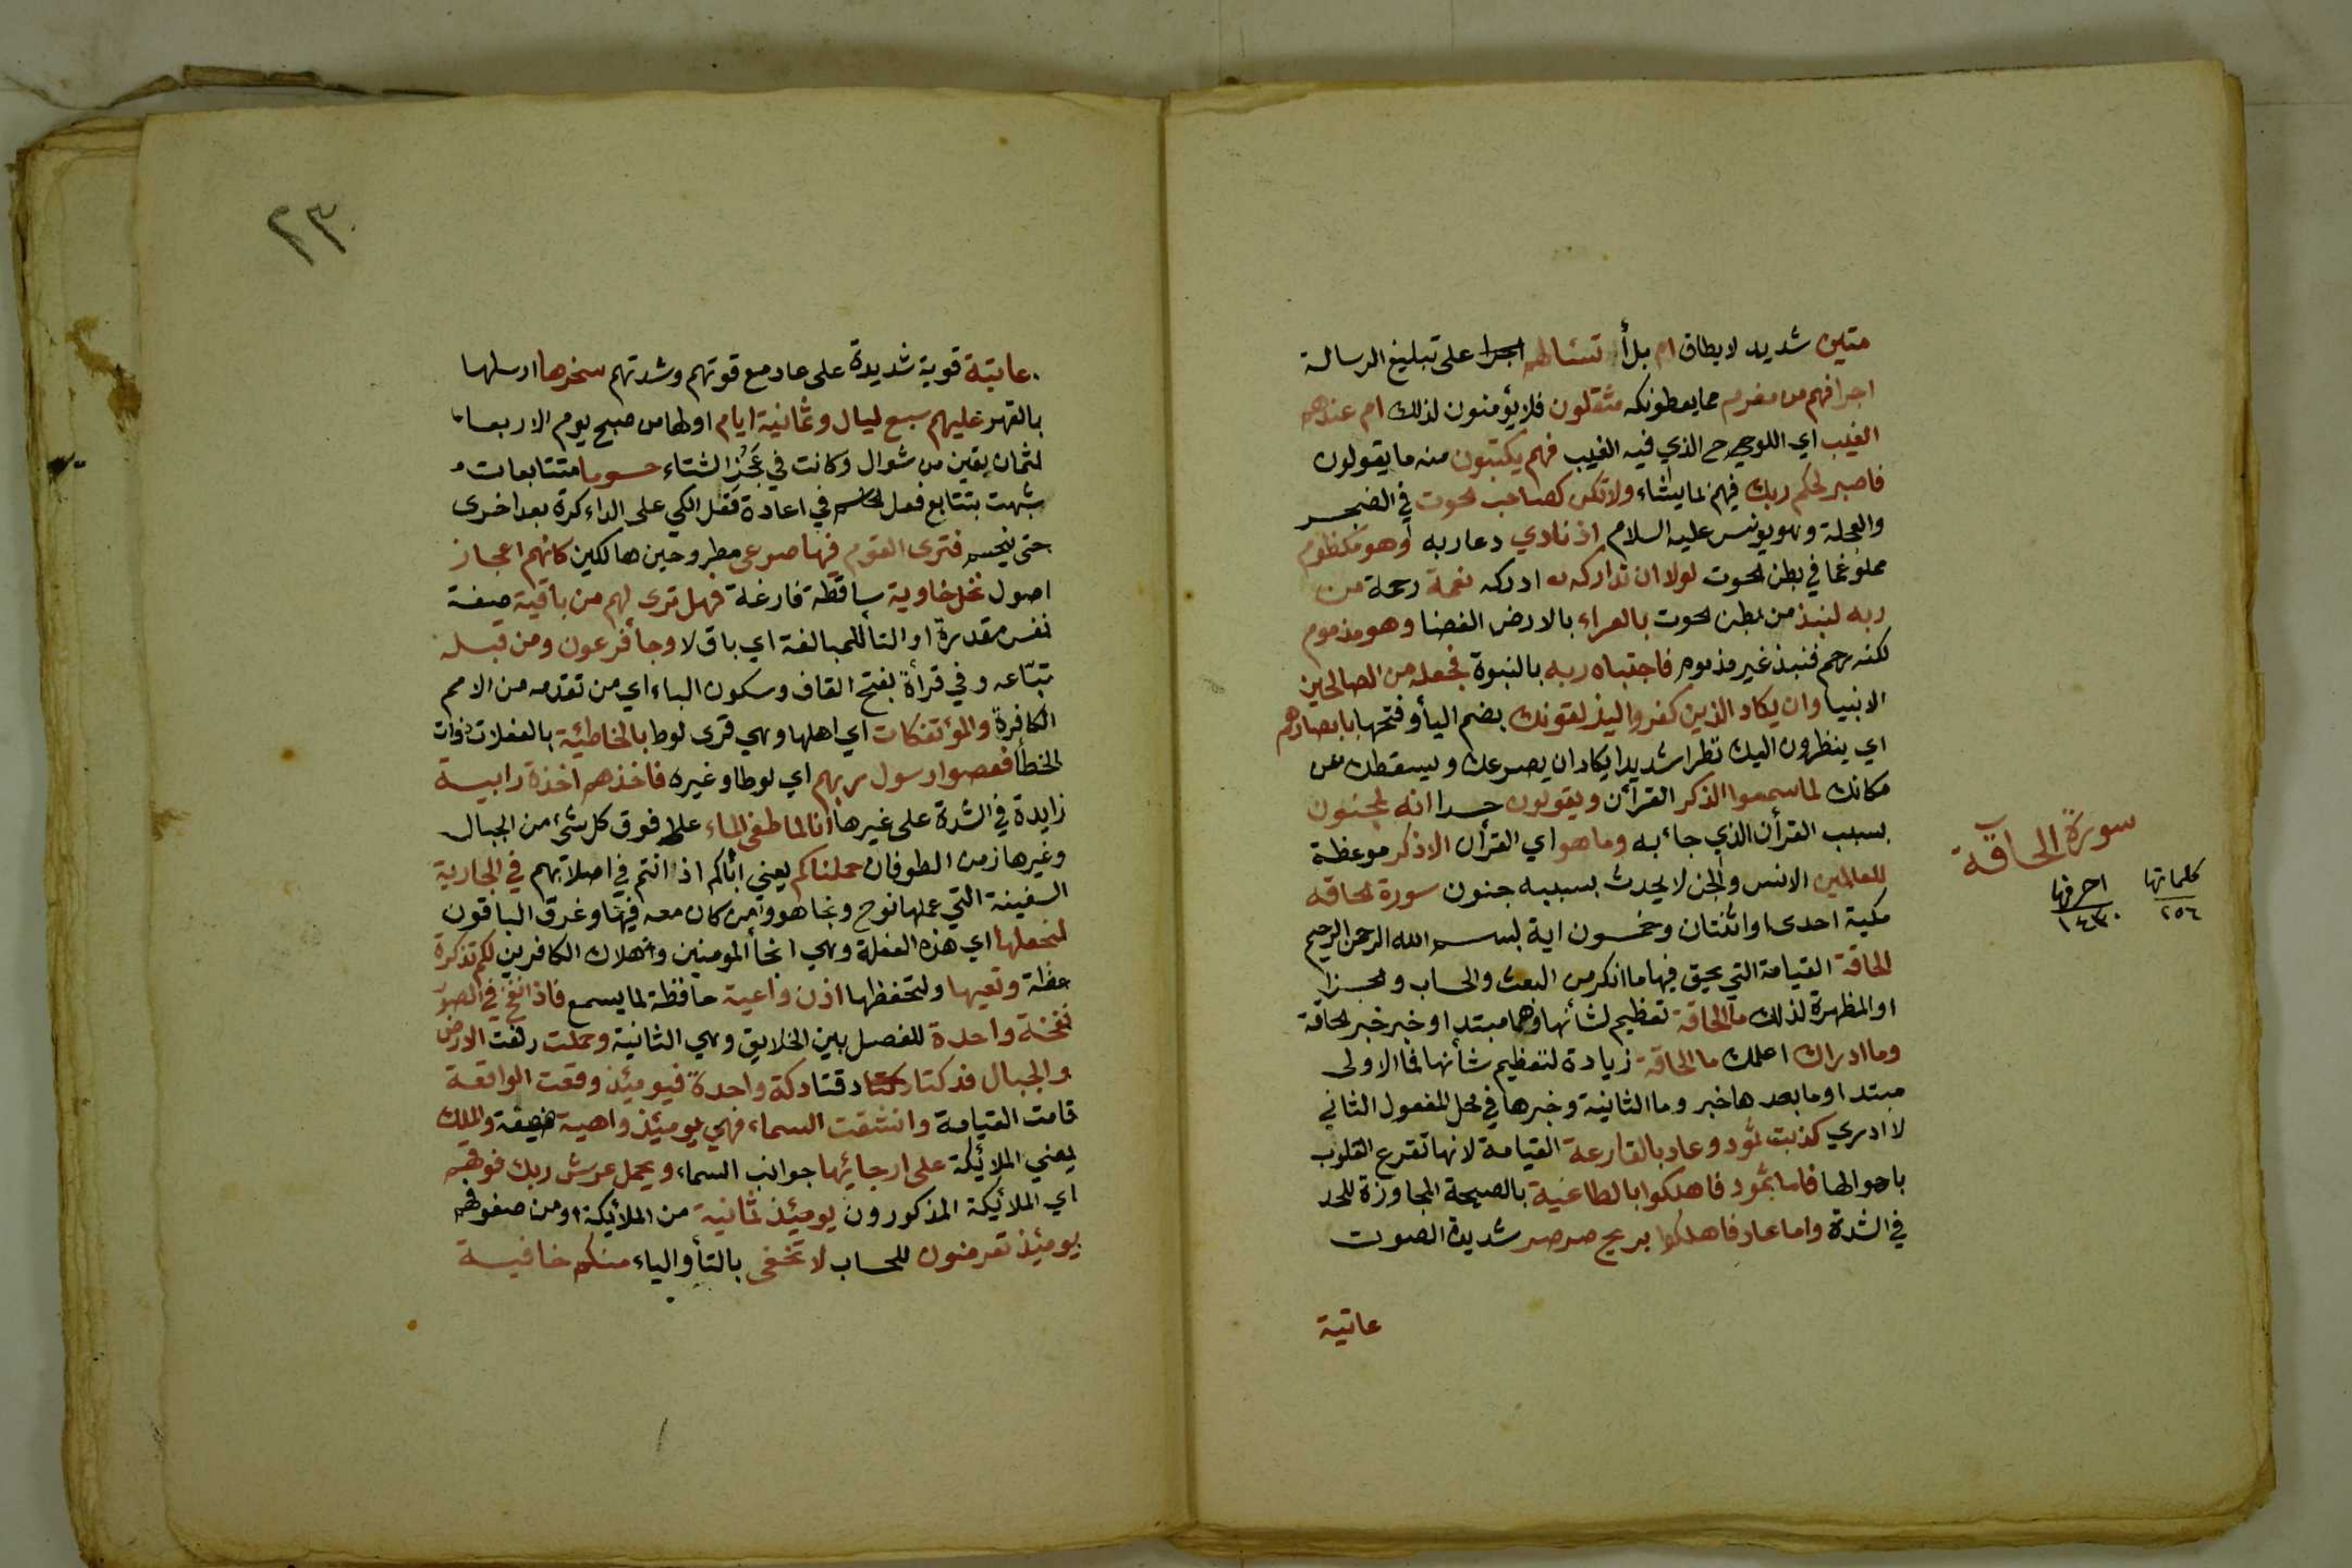 متين شديد لا يطاق ام بل أ تسئلهم اجرا على تبليغ الرسالة
اجرا فهم من مغرم مما يعطونكه مثقلون فلا يؤمنون لذلك ام عندهم
الغيب اي اللوح الذي فيه الغيب فهم يكتبون منه ما يقولون
فاصبر لحكم ربك فيهم لما يشاء ولا تكن كصاحب لحوت في الضجر
والعجلة وهو يونس عليه السلام اذ نادي دعا ربه وهو مكظوم
مملو غما في بطن لحوت لولا ان تداركه ادركه نعمة رحمة من
ربه لنبذ من بطن لحوت بالعراء بالارض الفضا وهو مذموم
لكنه رحم فنبذ غير مذموم فاجتباه ربه بالنبوة فجعله من الصالحين
الانبيا وان يكاد الذين كفروا ليذلقونك بضم اليأ وفتحها بابصارهم
اي ينظرون اليك نظرا شديدا يكاد ان يصرعك ويسقطك من
مكانك لما سمعوا الذكر القرأن ويقولون حسدا انه لمجنون
بسبب القرأن الذي جأ به وما هو اي القرأن الا ذكر موعظة
للعالمين الانس والجن لا يحدث بسببه جنون سورة لحاقه
مكية احدى او اثنتان وخمسون اية بسم الله الرحمن الرحيم
الحاقة القيامة التي يحق فيها ما انكر من البعث والحساب والجزا
او المظهرة لذلك ما الحاقة تعظيم لشأنها وهما مبتدا وخبر خبر لحاقة
وما ادراك اعلمك ما الحاقة زيادة لتعظيم شأنها فما الاولى
مبتدا وما بعدها خبر وما الثانية وخبرها في محل المفعول الثاني
لا ادري كذبت ثمود وعاد بالقارعة القيامة لانها تقرع القلوب
باهوالها فاما ثمود فاهلكوا بالطاغية بالصيحة المجاوزة للحد
في الشدة واما عاد فاهلكوا بريح صرصر شديدة الصوت
عاتية
سورة الحاقة
كلماتها ٢٥٦
احرفها ١٤٣٠
٢٣
عاتية قوية شديدة على عاد مع قوتهم وشدتهم سخرها ارسلها
بالقهر عليهم سبع ليال وثمانية ايام اولها من صبح يوم الاربعا
لثمان بقين من شوال وكانت في عَجُز الشتاء حسوما متتابعات
شبهت بتتابع فعل لحاسم في اعادة فعل الكي على الداء كرة بعد اخرى
حتى ينحسم فترى القوم فيها صرعى مطروحين هالكين كانهم اعجاز
اصول نخل خاوية ساقطة فارغة فهل ترى لهم من باقية صفة
نفس مقدرة او التأ للمبالغة اي باق لا وجأ فرعون ومن قبله
تبّاعه وفي قرأة بفتح القاف وسكون الباء اي من تقدمه من الامم
الكافرة والمؤتفكات اي اهلها وهي قرى لوط بالخاطئية بالفعلات ذوات
لخطأ فعصوا رسول ربهم اي لوطا وغيره فاخذهم اخذة رابية
زايدة في الشدة على غيرها انا لما طغى الماء علا فوق كل شئ من الجبال
وغيرها زمن الطوفان حملناكم يعني ابأكم اذ انتم في اصلابهم في الجارية
السفينة التي عملها نوح ونجا هو ومن كان معه فيها وغرق الباقون
لنجعلها اي هذه الفعلة وهي انجأ المومنين واهلاك الكافرين لكم تذكرة
عظة وتعيها ولتحفظها اذن واعية حافظة لما يسمع فاذا نفخ في الصور
نفخة واحدة للفصل بين الخلايق وهي الثانية وحملت رفعت الارض
والجبال فدكتا دقتا دكة واحدة فيومئذ وقعت الواقعة
قامت القيامة وانشقت السماء فهي يومئذ واهية ضعيفة والملك
يعني الملائكة على ارجائها جوانب السماء ويحمل عرش ربك فوقهم
اي الملائكة المذكورون يومئذ ثمانية من الملائكة او من صفوفهم
يومئذ تعرضون للحساب لا تخفى بالتأ والياء منكم خافية